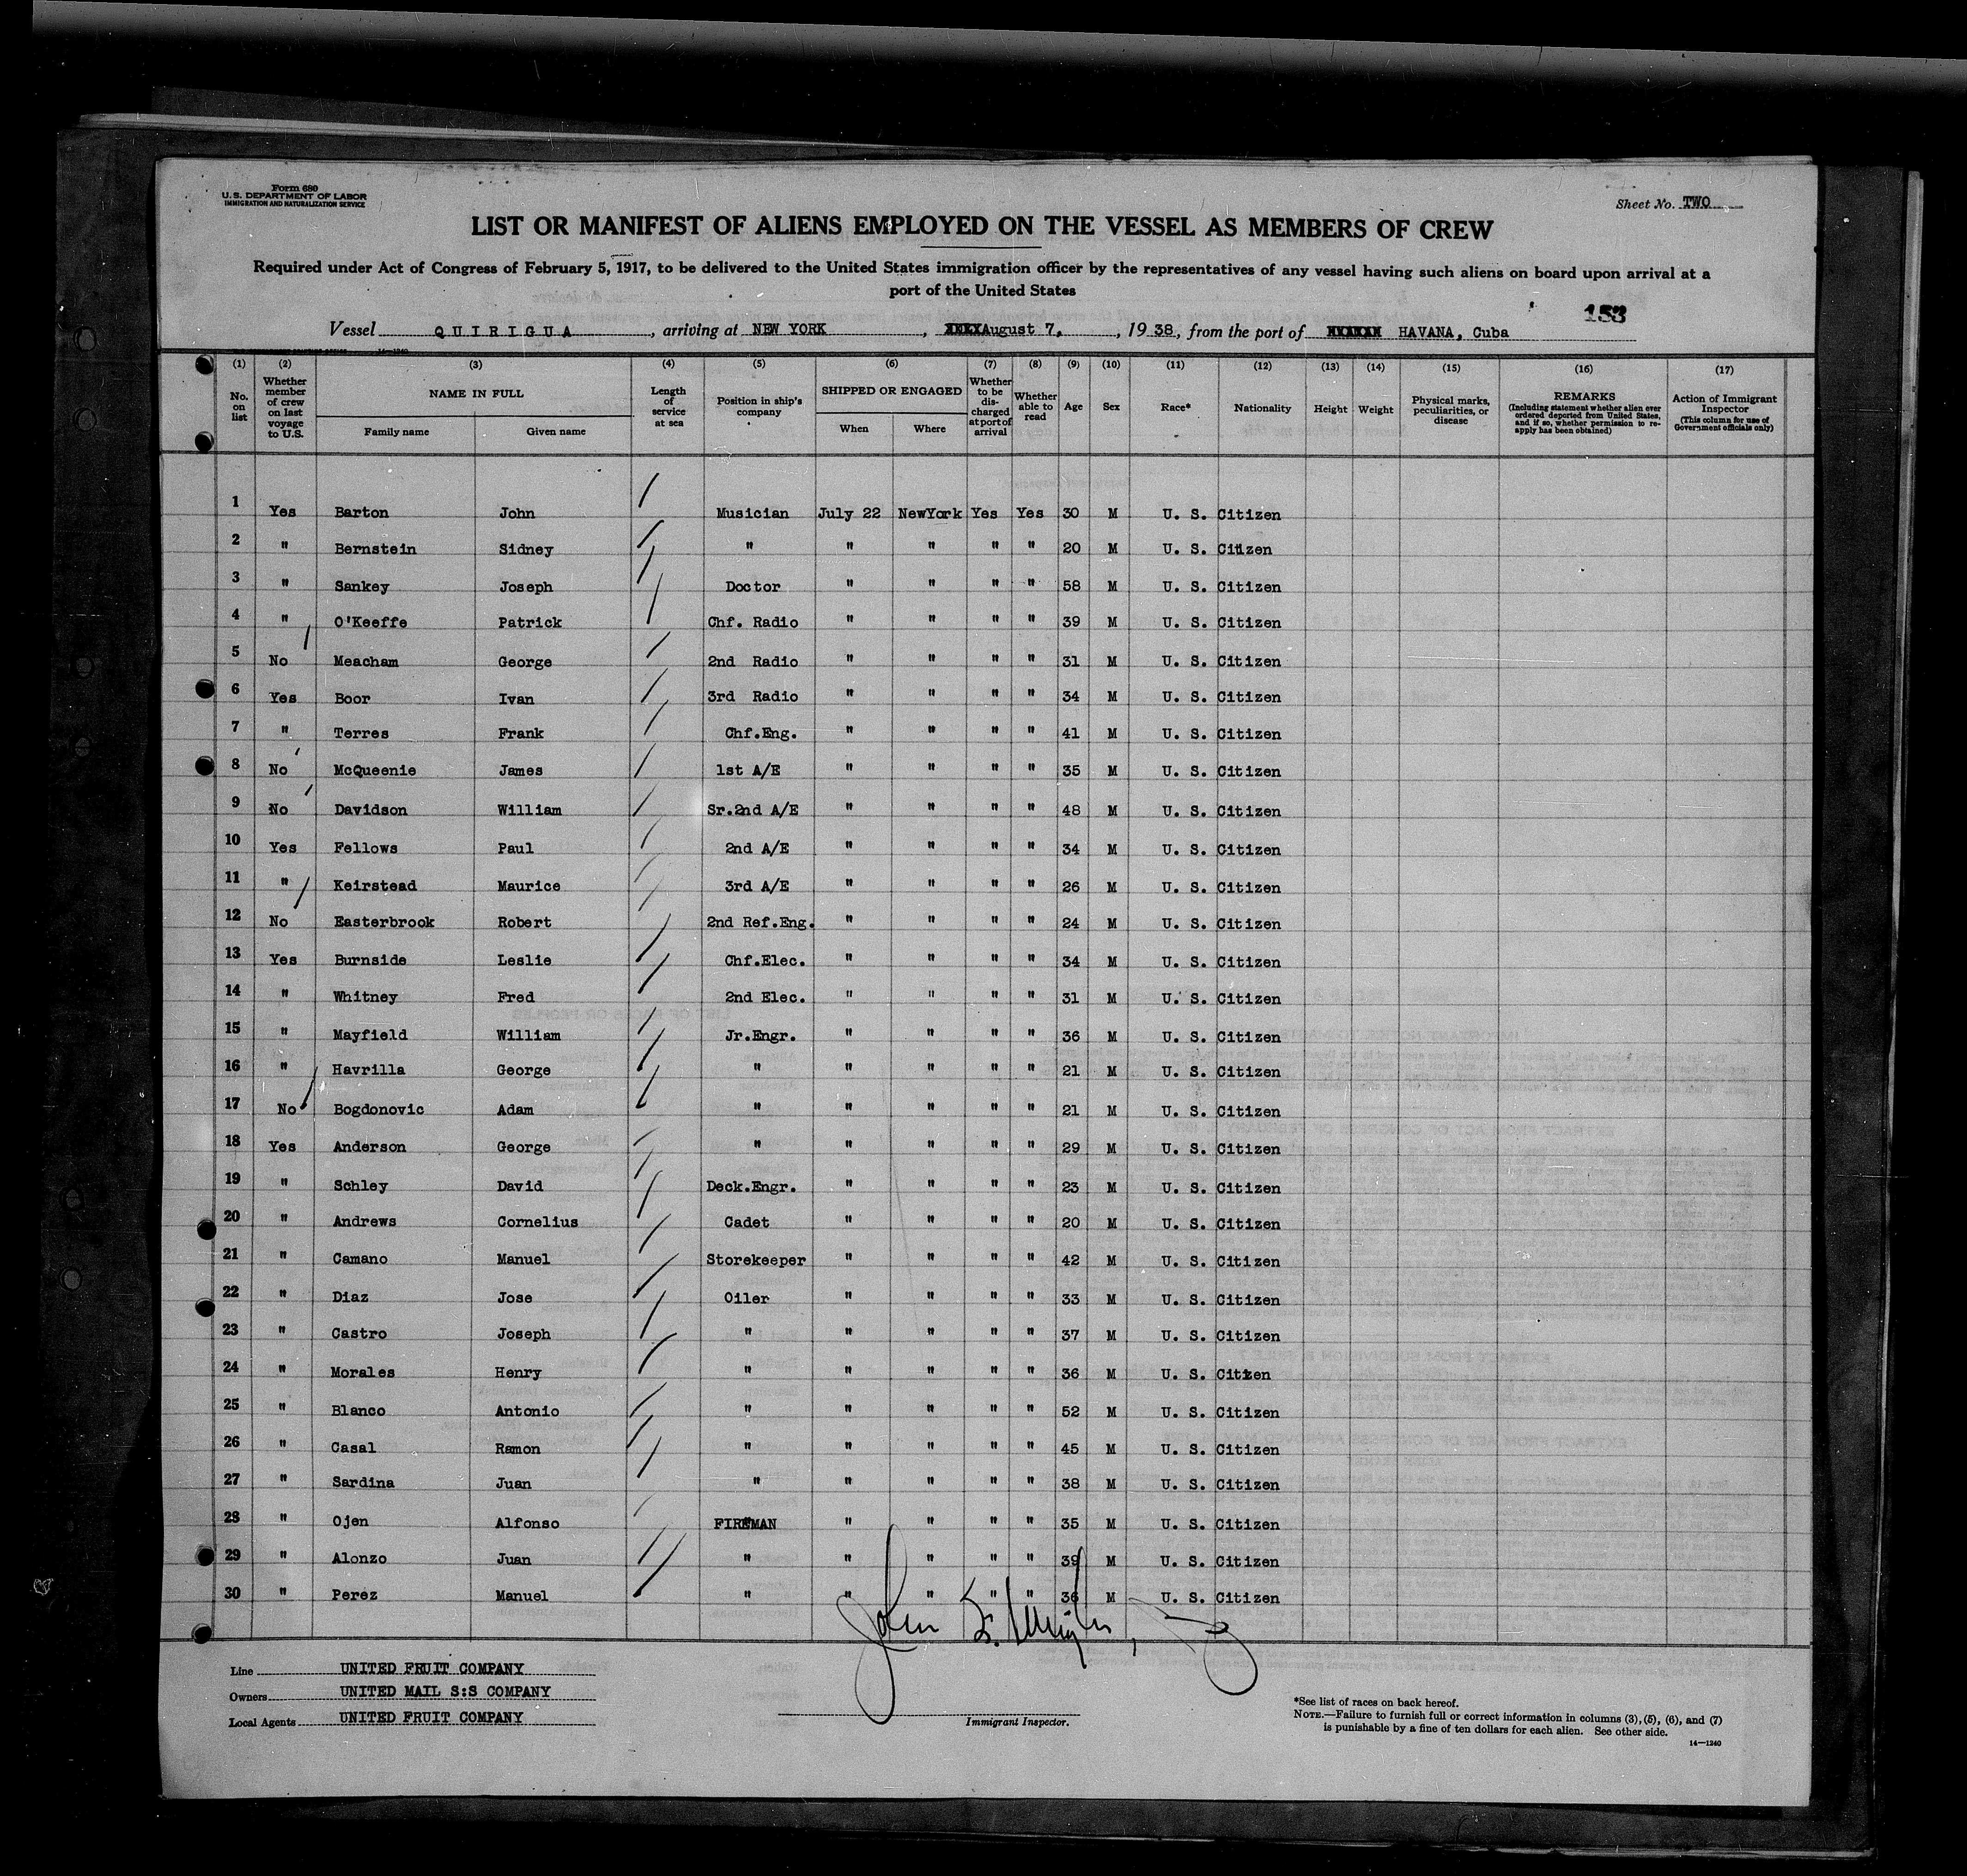 Form 680
U.S. DEPARTMENT OF LABOR
IMMIGRATION AND NATURALIZATION SERVICE
Sheet No. TWO
LIST OR MANIFEST OF ALIENS EMPLOYED ON THE VESSEL AS MEMBERS OF CREW
Required under Act of Congress of February 5, 1917, to be delivered to the United States immigration officer by the representatives of any vessel having such aliens on board upon arrival at a
port of the United States
153
Vessel QUIRIGUA, arriving at NEW YORK, August 7, 1938, from the port of HAVANA, Cuba
(1) (2) (3) (4) (5) (6) (7) (8) (9) (10) (11) (12) (13) (14) (15) (16) (17)
No. on list
Whether member of crew on last voyage to U.S.
NAME IN FULL
Family name Given name
Length of service at sea
Position in ship's company
SHIPPED OR ENGAGED
When Where
Whether to be discharged at port of arrival
Whether able to read
Age
Sex
Race*
Nationality
Height
Weight
Physical marks, peculiarities, or disease
REMARKS
(Including statement whether alien ever ordered deported from United States, and if so, whether permission to reapply has been obtained)
Action of Immigrant Inspector
(This column for use of Government officials only)
1 Yes Barton John Musician July 22 NewYork Yes Yes 30 M U. S. Citizen
2 " Bernstein Sidney " " " " " 20 M U. S. Citizen
3 " Sankey Joseph Doctor " " " " 58 M U. S. Citizen
4 " O'Keeffe Patrick Chf. Radio " " " " 39 M U. S. Citizen
5 No Meacham George 2nd Radio " " " " 31 M U. S. Citizen
6 Yes Boor Ivan 3rd Radio " " " " 34 M U. S. Citizen
7 " Terres Frank Chf.Eng. " " " " 41 M U. S. Citizen
8 No McQueenie James 1st A/E " " " " 35 M U. S. Citizen
9 No Davidson William Sr.2nd A/E " " " " 48 M U. S. Citizen
10 Yes Fellows Paul 2nd A/E " " " " 34 M U. S. Citizen
11 " Keirstead Maurice 3rd A/E " " " " 26 M U. S. Citizen
12 No Easterbrook Robert 2nd Ref.Eng. " " " " 24 M U. S. Citizen
13 Yes Burnside Leslie Chf.Elec. " " " " 34 M U. S. Citizen
14 " Whitney Fred 2nd Elec. " " " " 31 M U. S. Citizen
15 " Mayfield William Jr.Engr. " " " " 36 M U. S. Citizen
16 " Havrilla George " " " " " 21 M U. S. Citizen
17 No Bogdonovic Adam " " " " " 21 M U. S. Citizen
18 Yes Anderson George " " " " " 29 M U. S. Citizen
19 " Schley David Deck.Engr. " " " " 23 M U. S. Citizen
20 " Andrews Cornelius Cadet " " " " 20 M U. S. Citizen
21 " Camano Manuel Storekeeper " " " " 42 M U. S. Citizen
22 " Diaz Jose Oiler " " " " 33 M U. S. Citizen
23 " Castro Joseph " " " " " 37 M U. S. Citizen
24 " Morales Henry " " " " " 36 M U. S. Citizen
25 " Blanco Antonio " " " " " 52 M U. S. Citizen
26 " Casal Ramon " " " " " 45 M U. S. Citizen
27 " Sardina Juan " " " " " 38 M U. S. Citizen
28 " Ojen Alfonso FIREMAN " " " " 35 M U. S. Citizen
29 " Alonzo Juan " " " " " 39 M U. S. Citizen
30 " Perez Manuel " " " " " 36 M U. S. Citizen
John
Line UNITED FRUIT COMPANY
Owners UNITED MAIL S:S COMPANY
Local Agents UNITED FRUIT COMPANY
Immigrant Inspector.
*See list of races on back hereof.
NOTE.—Failure to furnish full or correct information in columns (3), (5), (6), and (7)
is punishable by a fine of ten dollars for each alien. See other side.
14—1240